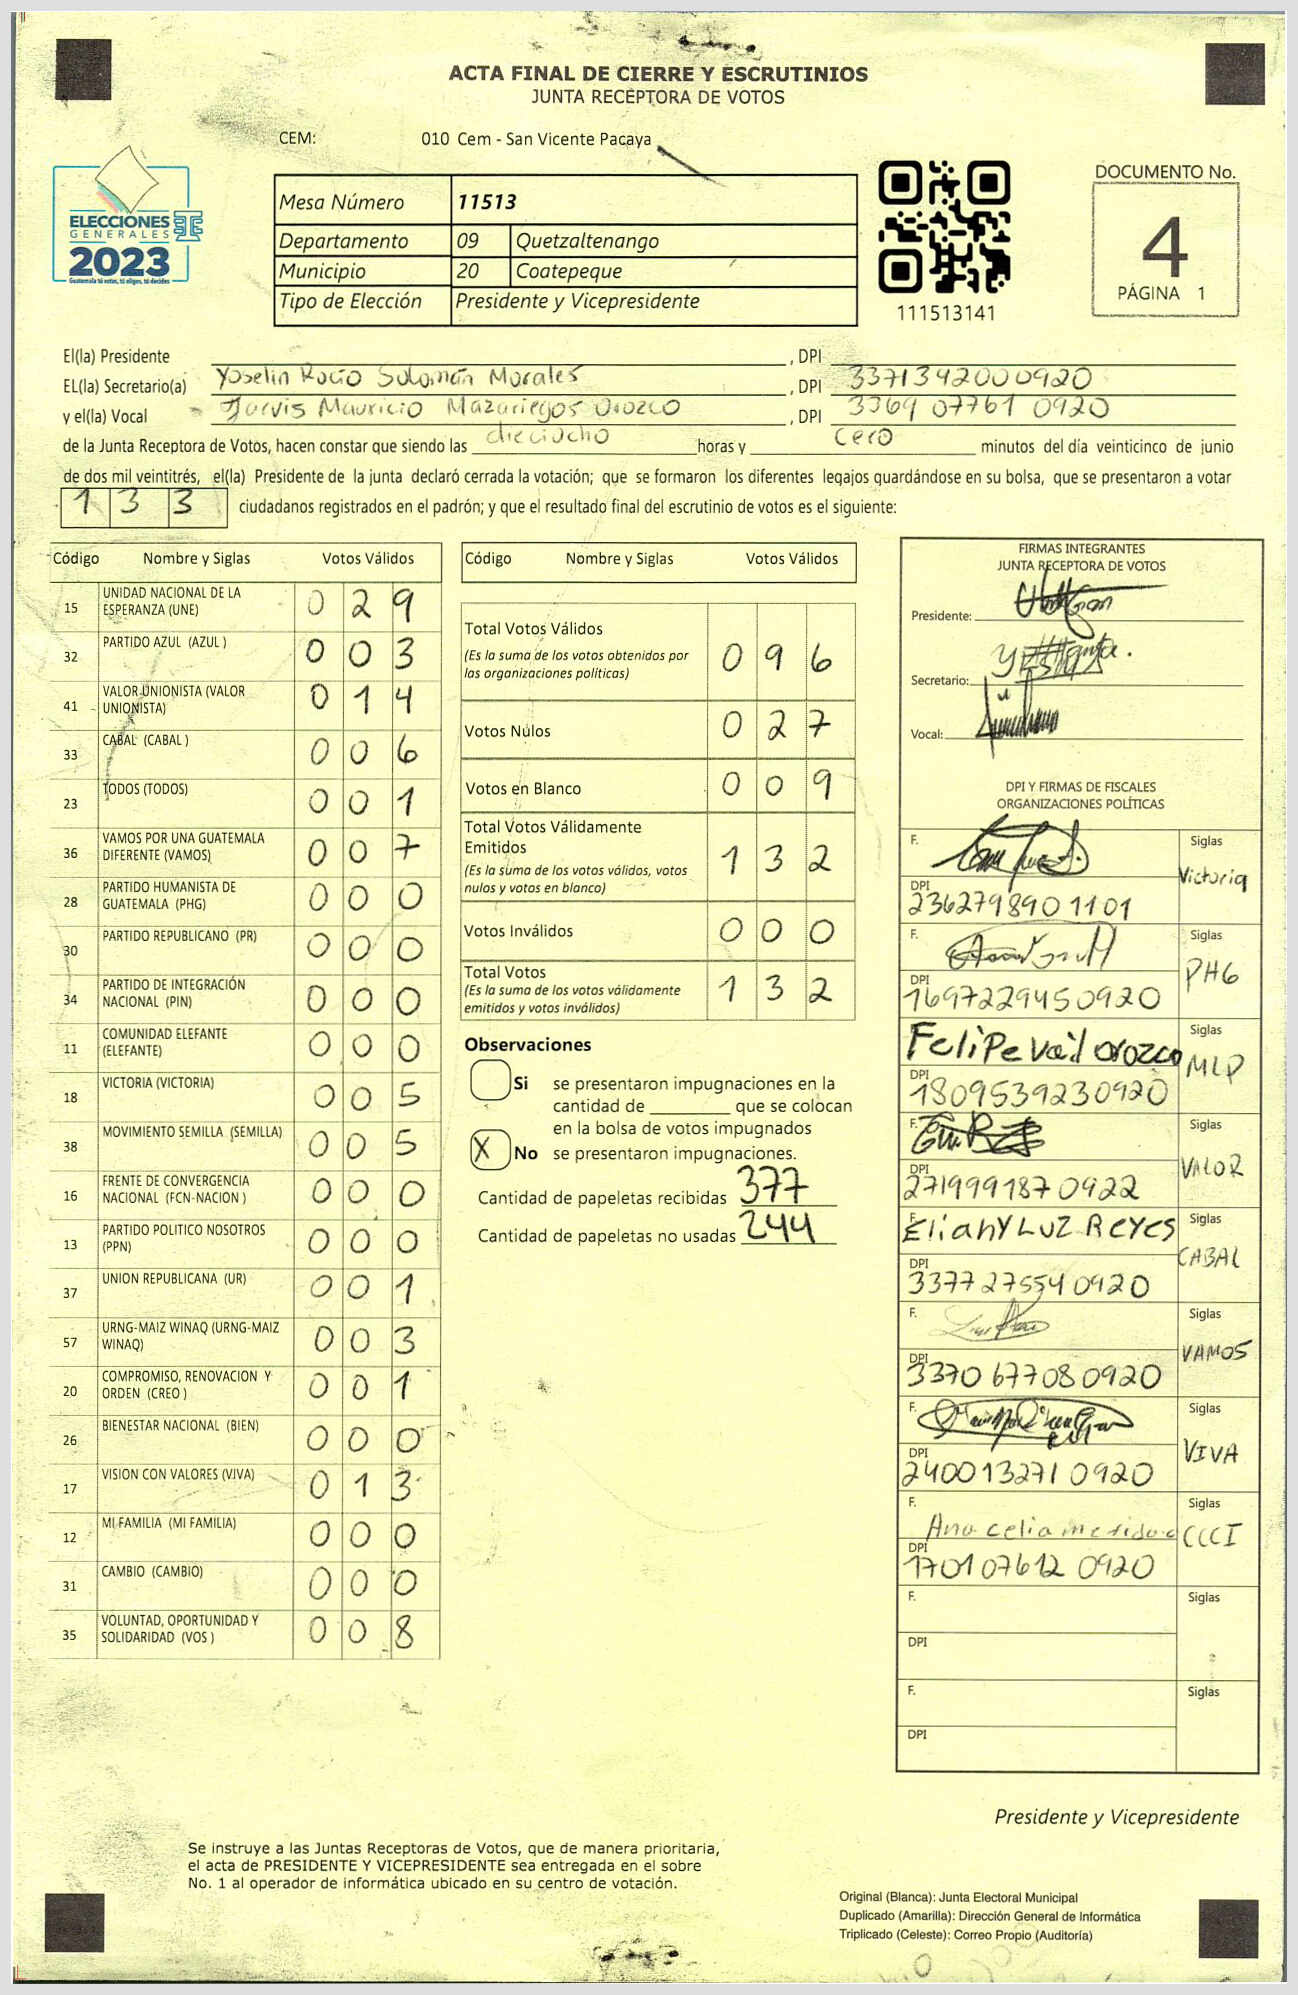 ACTA FINAL DE CIERRE Y ESCRUTINIOS
JUNTA RECEPTORA DE VOTOS
CEM: 010 Cem - San Vicente Pacaya
ELECCIONES
GENERALES
2023
Guatemala tú votas, tú eliges, tú decides
Mesa Número 11513
Departamento 09 Quetzaltenango
Municipio 20 Coatepeque
Tipo de Elección Presidente y Vicepresidente
111513141
DOCUMENTO No.
4
PÁGINA 1
El(la) Presidente , DPI
EL(la) Secretario(a) Yoselin Rocío Solomán Morales , DPI 3371342000920
y el(la) Vocal Jarvis Mauricio Mazariegos Orozco , DPI 3369 07761 0920
de la Junta Receptora de Votos, hacen constar que siendo las dieciocho horas y cero minutos del día veinticinco de junio
de dos mil veintitrés, el(la) Presidente de la junta declaró cerrada la votación; que se formaron los diferentes legajos guardándose en su bolsa, que se presentaron a votar
1 3 3 ciudadanos registrados en el padrón; y que el resultado final del escrutinio de votos es el siguiente:
Código Nombre y Siglas Votos Válidos
15 UNIDAD NACIONAL DE LA ESPERANZA (UNE) 0 2 9
32 PARTIDO AZUL (AZUL ) 0 0 3
41 VALOR UNIONISTA (VALOR UNIONISTA) 0 1 4
33 CABAL (CABAL ) 0 0 6
23 TODOS (TODOS) 0 0 1
36 VAMOS POR UNA GUATEMALA DIFERENTE (VAMOS) 0 0 7
28 PARTIDO HUMANISTA DE GUATEMALA (PHG) 0 0 0
30 PARTIDO REPUBLICANO (PR) 0 0 0
34 PARTIDO DE INTEGRACIÓN NACIONAL (PIN) 0 0 0
11 COMUNIDAD ELEFANTE (ELEFANTE) 0 0 0
18 VICTORIA (VICTORIA) 0 0 5
38 MOVIMIENTO SEMILLA (SEMILLA) 0 0 5
16 FRENTE DE CONVERGENCIA NACIONAL (FCN-NACION ) 0 0 0
13 PARTIDO POLITICO NOSOTROS (PPN) 0 0 0
37 UNION REPUBLICANA (UR) 0 0 1
57 URNG-MAIZ WINAQ (URNG-MAIZ WINAQ) 0 0 3
20 COMPROMISO, RENOVACION Y ORDEN (CREO ) 0 0 1
26 BIENESTAR NACIONAL (BIEN) 0 0 0
17 VISION CON VALORES (VIVA) 0 1 3
12 MI FAMILIA (MI FAMILIA) 0 0 0
31 CAMBIO (CAMBIO) 0 0 0
35 VOLUNTAD, OPORTUNIDAD Y SOLIDARIDAD (VOS ) 0 0 8
Código Nombre y Siglas Votos Válidos
Total Votos Válidos 0 9 6
(Es la suma de los votos obtenidos por
las organizaciones políticas)
Votos Nulos 0 2 7
Votos en Blanco 0 0 9
Total Votos Válidamente
Emitidos 1 3 2
(Es la suma de los votos válidos, votos
nulos y votos en blanco)
Votos Inválidos 0 0 0
Total Votos 1 3 2
(Es la suma de los votos válidamente
emitidos y votos inválidos)
Observaciones
Si se presentaron impugnaciones en la
cantidad de ________ que se colocan
en la bolsa de votos impugnados
X No se presentaron impugnaciones.
Cantidad de papeletas recibidas 377
Cantidad de papeletas no usadas 244
FIRMAS INTEGRANTES
JUNTA RECEPTORA DE VOTOS
Presidente:
Secretario:
Vocal:
DPI Y FIRMAS DE FISCALES
ORGANIZACIONES POLÍTICAS
F. Siglas Victoria
DPI 2362798901101
F. Siglas PHG
DPI 1697229450920
Felipe Vail Orozco Siglas MLP
DPI 1809539230920
F. Siglas VALOR
DPI 2719991870922
F. Eliany Luz Reyes Siglas CABAL
DPI 3377275540920
F. Siglas VAMOS
DPI 3370 677080920
F. Siglas VIVA
DPI 2400132710920
F. Ana celia Siglas CCCI
DPI 170107612 0920
F. Siglas
DPI
F. Siglas
DPI
Presidente y Vicepresidente
Se instruye a las Juntas Receptoras de Votos, que de manera prioritaria,
el acta de PRESIDENTE Y VICEPRESIDENTE sea entregada en el sobre
No. 1 al operador de informática ubicado en su centro de votación.
Original (Blanca): Junta Electoral Municipal
Duplicado (Amarilla): Dirección General de Informática
Triplicado (Celeste): Correo Propio (Auditoría)